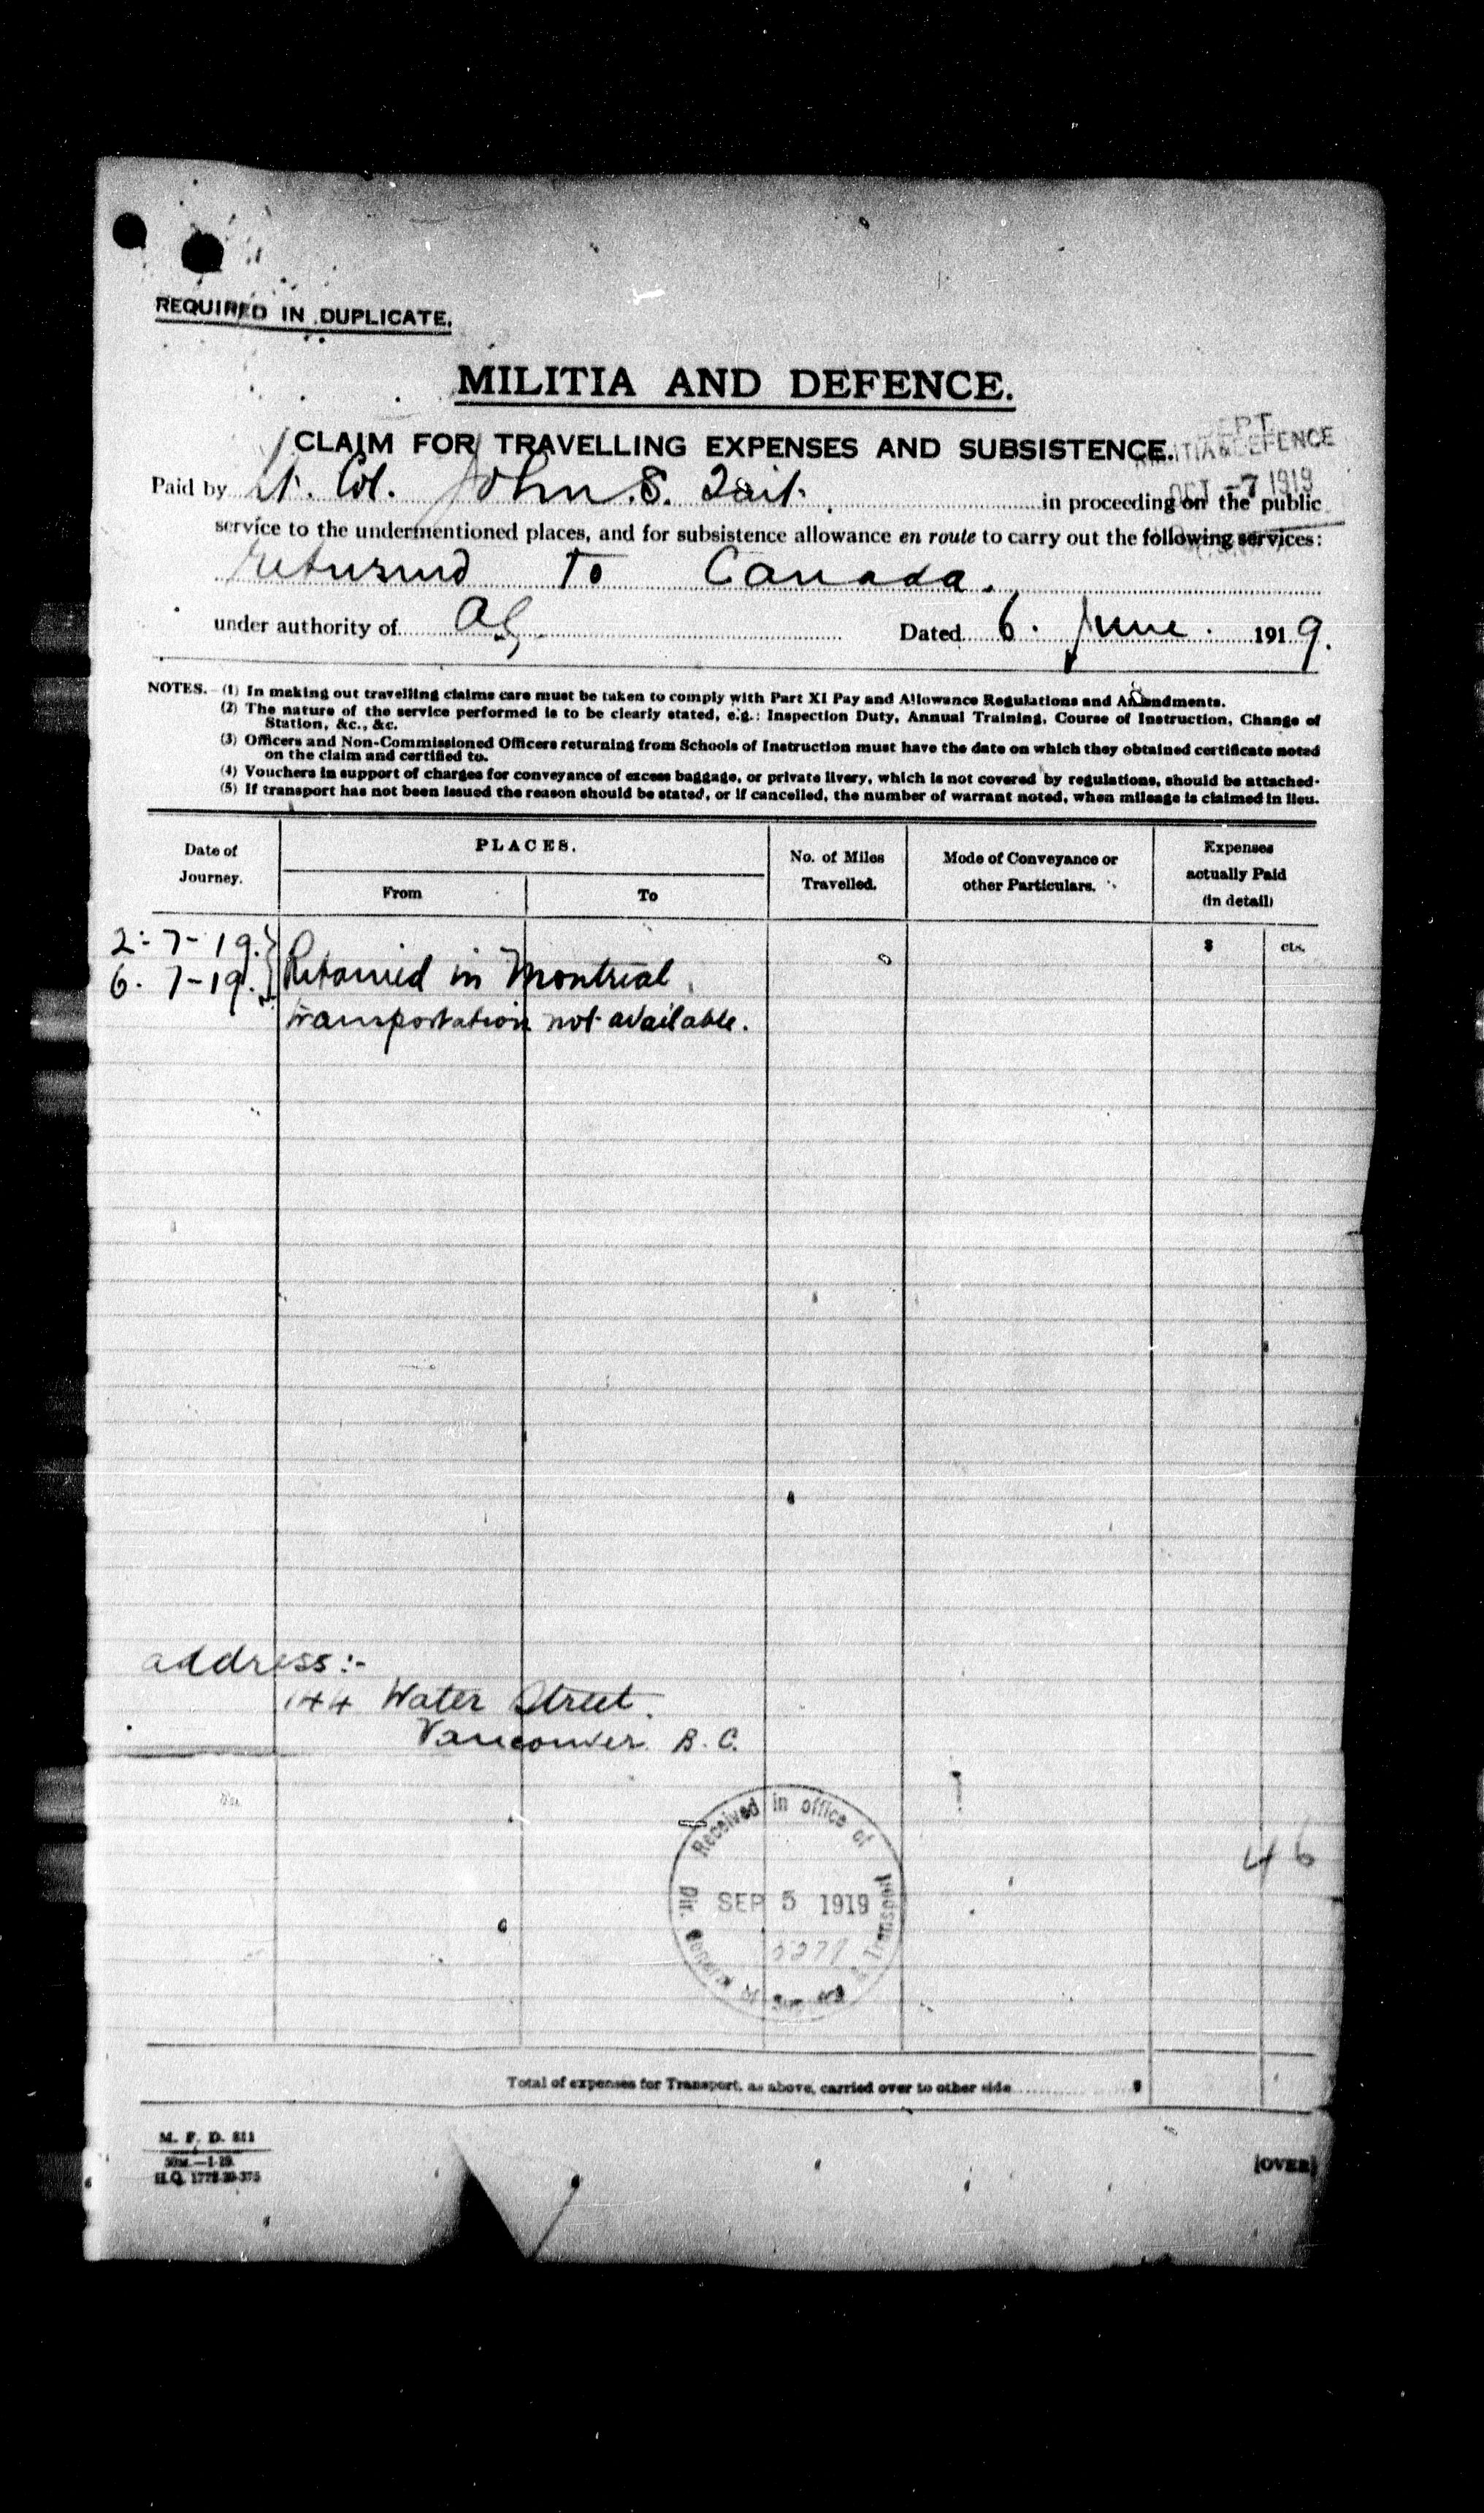 REQUIRED IN DUPLICATE.
MILITIA AND DEFENCE.
CLAIM FOR TRAVELLING EXPENSES AND SUBSISTENCE.
DEPT
MILITIA & DEFENCE
OCT -7 1919
Paid by Lt. Col. John. S. Tait. in proceeding on the public
service to the undermentioned places, and for subsistence allowance en route to carry out the following services:
returned to Canada.
under authority of AG. Dated 6. June. 1919.
NOTES.—(1) In making out travelling claims care must be taken to comply with Part XI Pay and Allowance Regulations and Amendments.
(2) The nature of the service performed is to be clearly stated, e.g.: Inspection Duty, Annual Training, Course of Instruction, Change of
Station, &c., &c.
(3) Officers and Non-Commissioned Officers returning from Schools of Instruction must have the date on which they obtained certificate noted
on the claim and certified to.
(4) Vouchers in support of charges for conveyance of excess baggage, or private livery, which is not covered by regulations, should be attached.
(5) If transport has not been issued the reason should be stated, or if cancelled, the number of warrant noted, when mileage is claimed in lieu.
Date of Journey. PLACES. From To No. of Miles Travelled. Mode of Conveyance or other Particulars. Expenses actually Paid (in detail)
$ cts.
2-7-19.
6-7-19. Retained in Montreal
transportation not available.
address:-
144 Water Street.
Vancouver B.C.
Received in office of
SEP 5 1919
Dir. General of Transport
46
Total of expenses for Transport, as above, carried over to other side $
M. F. D. 811
50M.—1-19.
H.Q. 1772-39-375
[OVER]